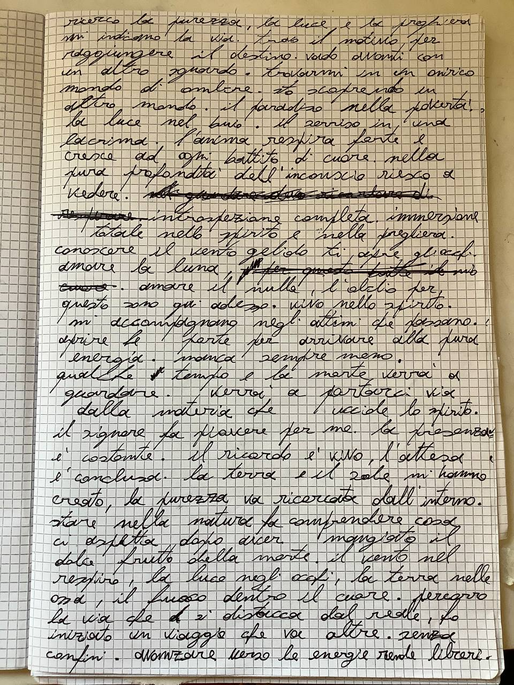 ricerco la purezza, la luce e la preghiera
mi indicano la via. trovo il motivo per
raggiungere il destino. vado avanti con
un altro sguardo. trovarmi in un onirico
mondo di ombre. sto scoprendo un
altro mondo. il paradiso nella povertà,
la luce nel buio. il sorriso in una
lacrima. l'anima respira forte e
cresce ad ogni battito di cuore nella
pura profondità dell'inconscio riesco a
vedere.
introspezione completa, immersione
totale nello spirito e nella preghiera.
conoscere il vento gelido ti apre gli occhi
amare la luna,
amare il nulla, l'alclio per
questo sono qui adesso. vivo nello spirito.
mi accompagnano negli attimi che passano.
aprire le porte per arrivare alla pura
energia. manca sempre meno.
qualche tempo e la morte verrà a
guardare. verrà a portarci via
dalla materia che uccide lo spirito.
il signore fa piacere per me. la presenza
e' costante. il ricordo e' vivo, l'attesa
e' conclusa. la terra e il sole mi hanno
creato, la purezza va ricercata dall'interno.
stare nella natura fa comprendere cosa
ci aspetta dopo aver mangiato il
dolce frutto della morte. il vento nel
respiro, la luce negli occhi, la terra nelle
ossa, il fuoco dentro il cuore. percorro
la via che si distacca dal reale, ho
iniziato un viaggio che va oltre. senza
confini. avanzare verso le energie rende liberi.